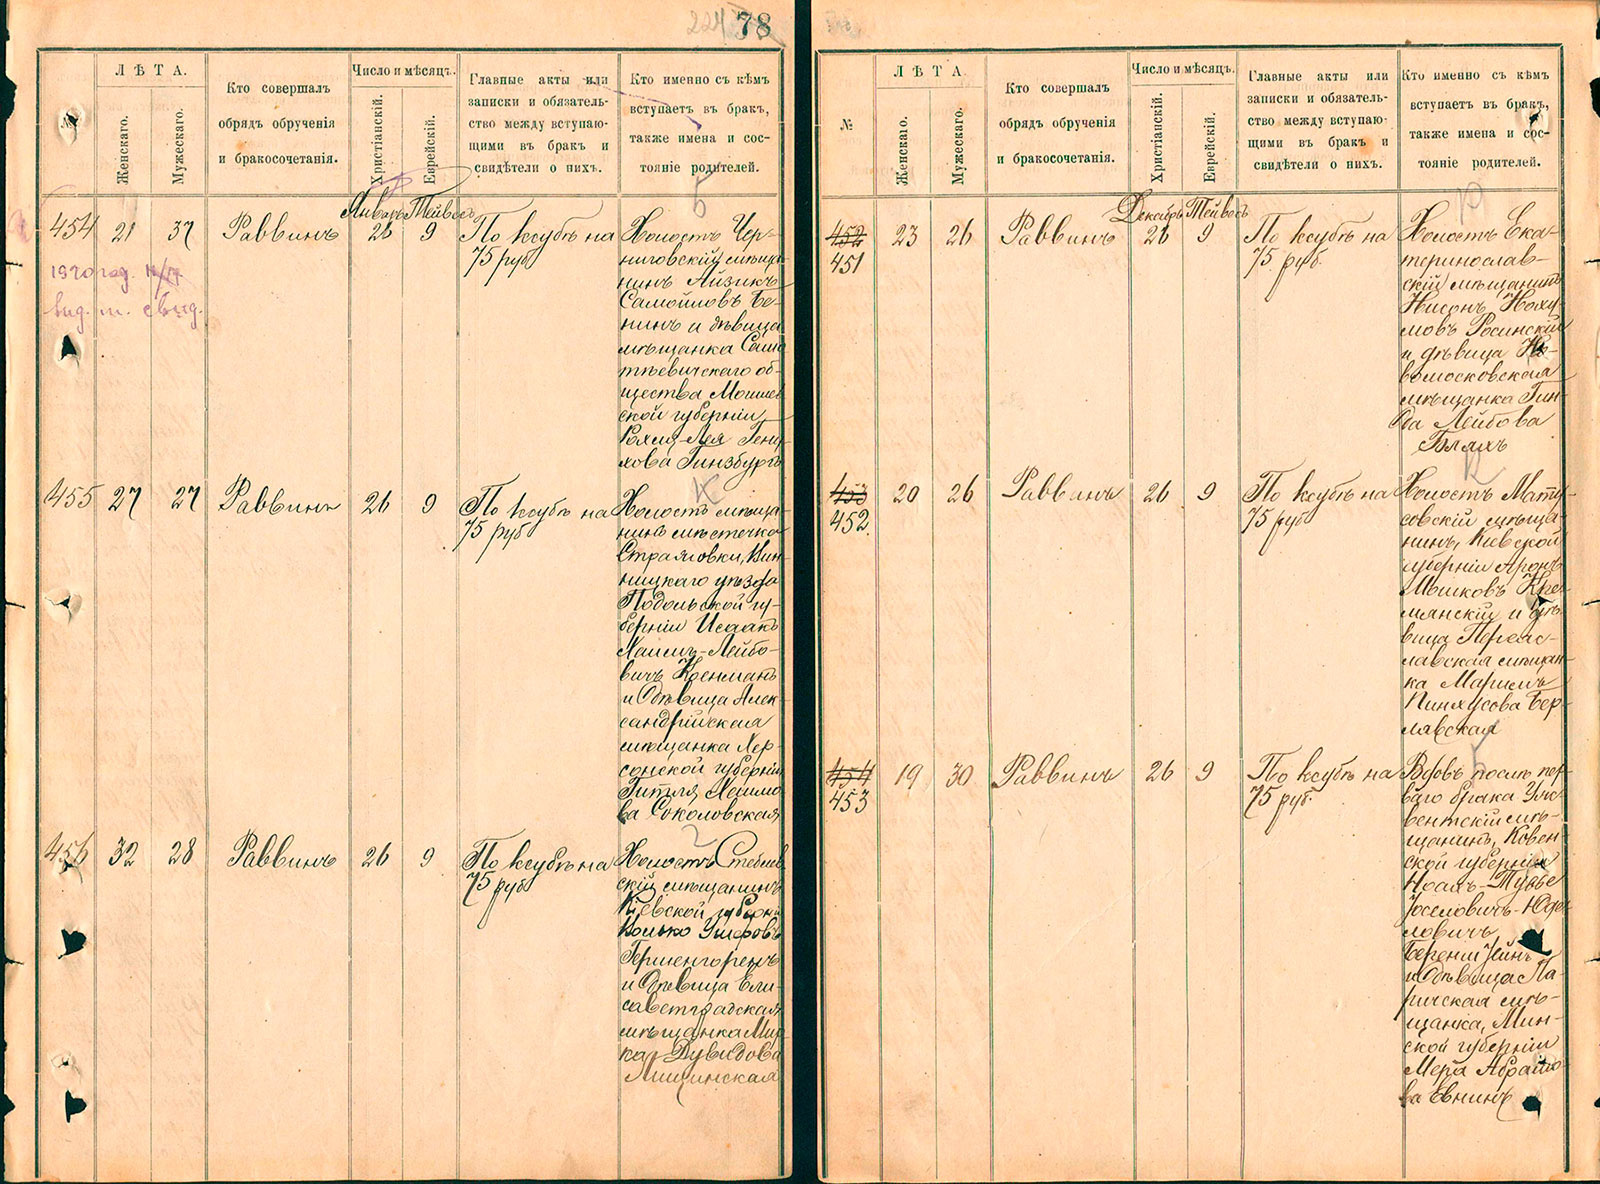 78
ЛѢТА.
Женскаго.
Мужескаго.
Кто совершалъ
обрядъ обрученія
и бракосочетанія.
Число и мѣсяцъ.
Христіанскій.
Еврейскій.
Главные акты или
записки и обязатель-
ство между вступаю-
щими въ бракъ и
свидѣтели о нихъ.
Кто именно съ кѣмъ
вступаетъ въ бракъ,
также имена и сос-
тояніе родителей.
Январь Тейвесъ
454 21 37 Раввинъ 26 9
По ксубѣ на
75 руб
Холостъ Чер-
ниговскій мѣща-
нинъ Айзикъ
Самойловъ Бе-
нинъ и дѣвица
мѣщанка
общества
ской губерніи
Рохля-Лея
Гинзбургъ
1920 год.
вид. м. свид.
455 27 27 Раввинъ 26 9
По ксубѣ на
75 руб
Холостъ мѣща-
нинъ мѣстечка
Вин-
ницкаго уѣзда
Подольской гу-
берніи Исаакъ
Хаимъ-Лейбо-
вичъ
и дѣвица Алек-
сандрійская
мѣщанка Хер-
сонской губерніи
Гитля Хаимо-
ва Соколовская
456 32 28 Раввинъ 26 9
По ксубѣ на
75 руб
Холостъ
скій мѣщанинъ
Кіевской губерніи
Гершенгоренъ
и дѣвица Ели-
саветградская
мѣщанка
Дувидова
№
ЛѢТА
Женскаго.
Мужескаго.
Кто совершалъ
обрядъ обрученія
и бракосочетанія.
Число и мѣсяцъ.
Христіанскій.
Еврейскій.
Главные акты или
записки и обязатель-
ство между вступаю-
щими въ бракъ и
свидѣтели о нихъ.
Кто именно съ кѣмъ
вступаетъ въ бракъ,
также имена и сос-
тояніе родителей.
Декабрь Тейвесъ
452 23 26 Раввинъ 26 9
451
По ксубѣ на
75 руб.
Холостъ Ека-
теринослав-
скій мѣщанинъ
Нисонъ Ноху-
мовъ Росинскій
и дѣвица Но-
вомосковская
мѣщанка Гин-
да Лейбова
Бляхъ
453 20 26 Раввинъ 26 9
452
По ксубѣ на
75 руб
Холостъ
мѣща-
нинъ, Кіевской
губерніи Аронъ
Мошковъ
и дѣ-
вица Переяс-
лавская мѣщан-
ка Маріемъ
Пинхусова Бер-
лявская
454 19 30 Раввинъ 26 9
453
По ксубѣ на
75 руб.
Вдовъ послѣ пер-
ваго брака
мѣ-
щанинъ, Ковен-
ской губерніи
и дѣвица Па-
ричская мѣ-
щанка, Мин-
ской губерніи
Мера Абрамо-
ва Евнинъ